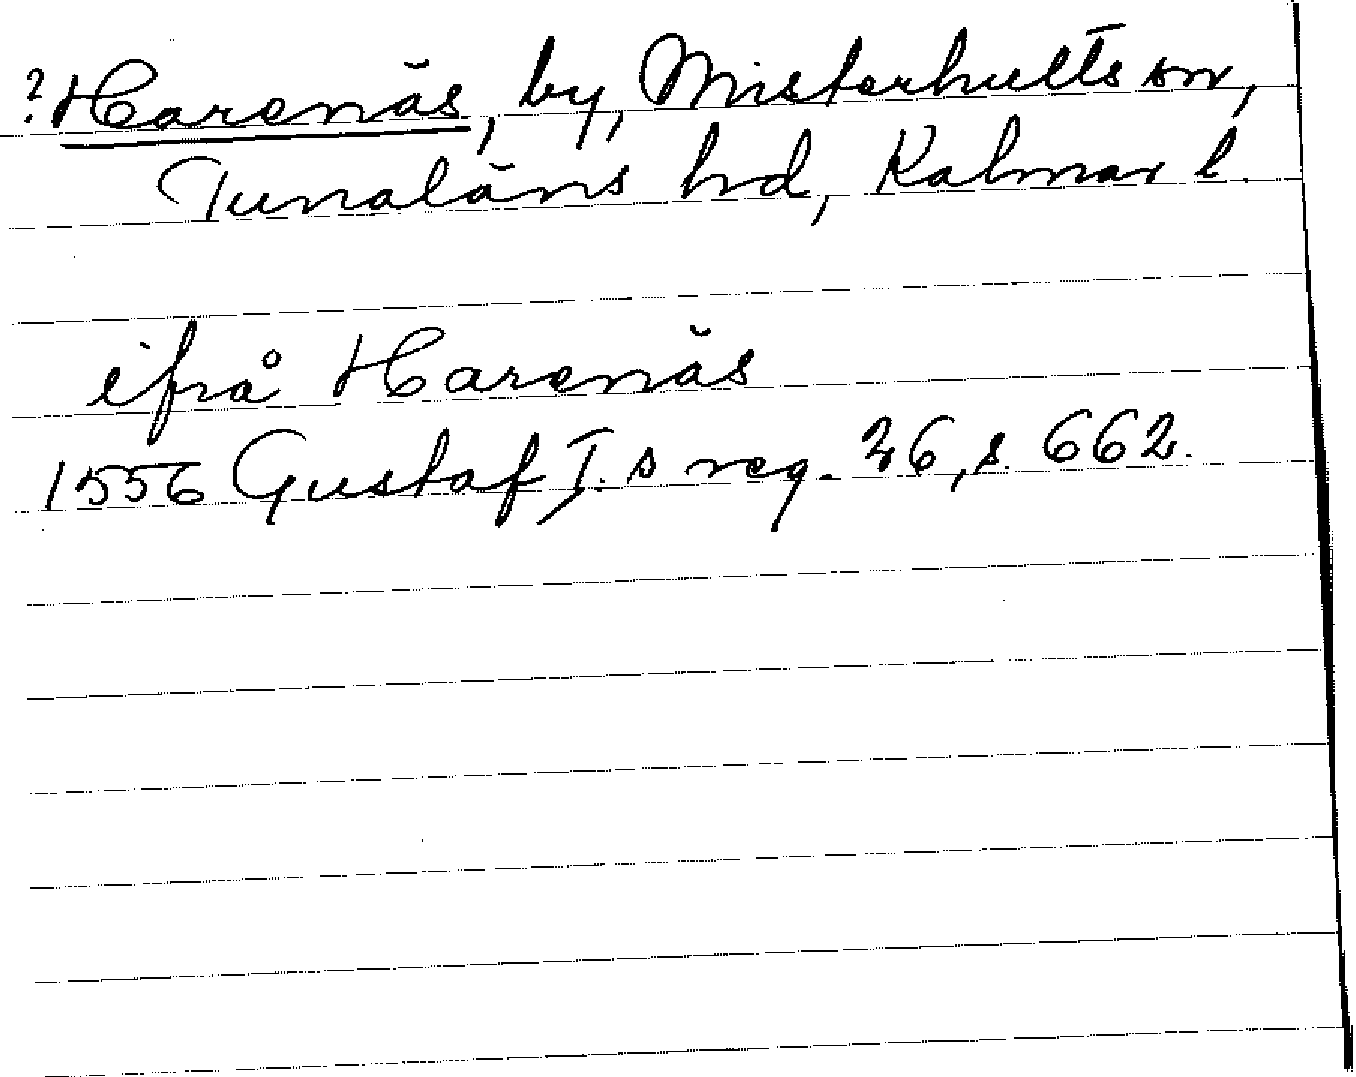 ? Harenäs, by, Misterhults sn,
Tunaläns hd, Kalmar l.
ifrå Harenäs
1556 Gustaf I.s reg. 26, s. 662.